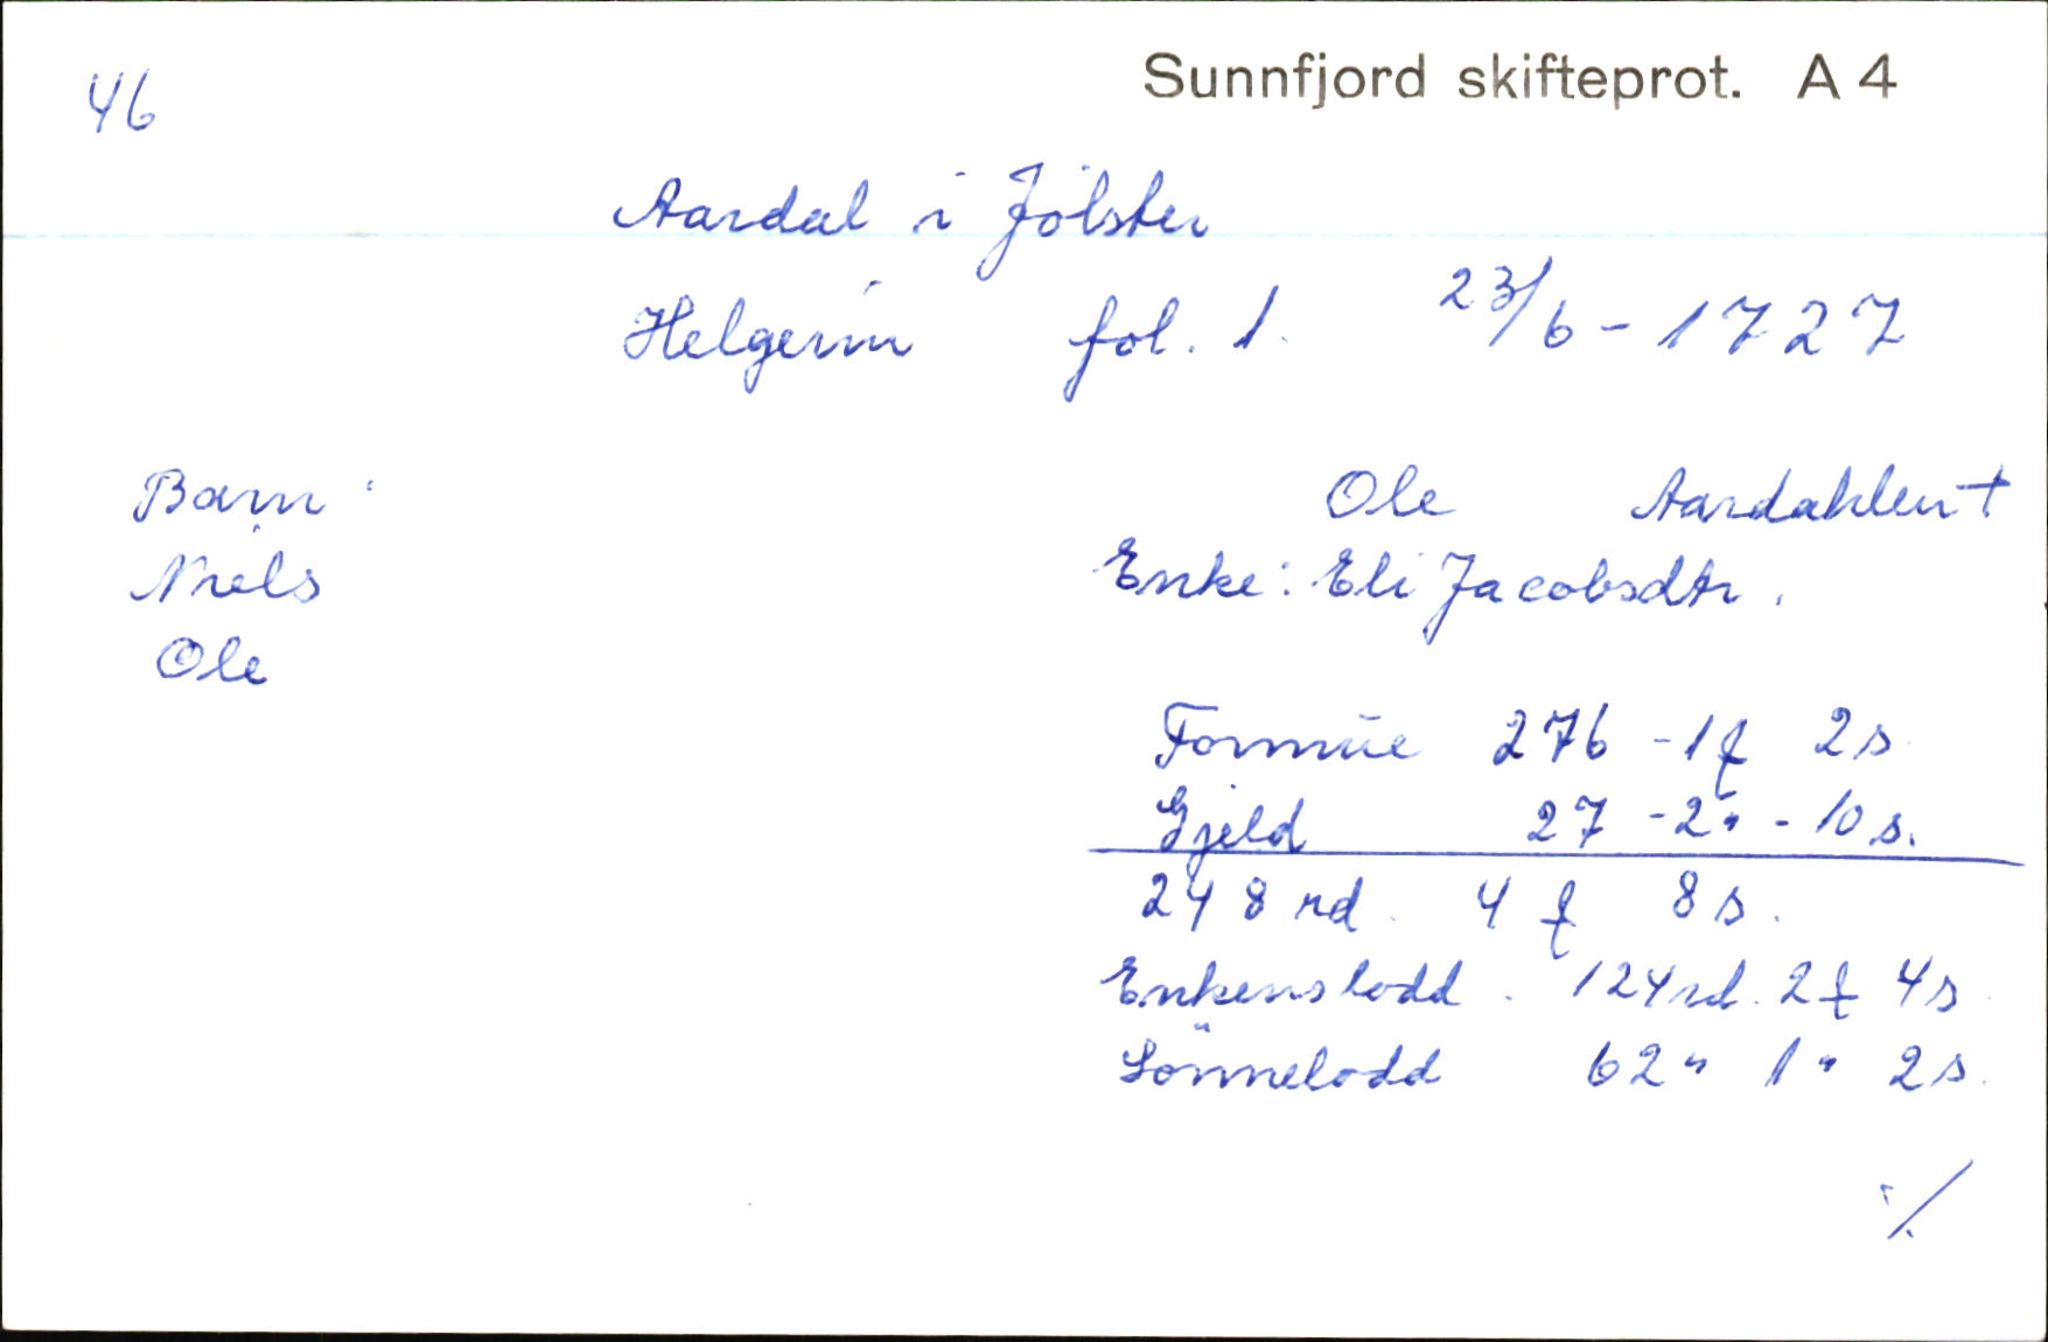 46
Sunnfjord skifteprot. A 4
Aardal i Jölster
fol. 1. 23/6 - 1727
Barn:
Niels
Ole
Ole Aardahlen †
Enke: Eli Jacobsdtr.
Formue 276 - 1 f 2 s
Gjeld 27 - 2 " - 10 s.
248 rd. 4 f 8 s.
Enkens lodd. 124 rd. 2 f 4 s
Sönnelodd 62 " 1 " 2 s.
./.